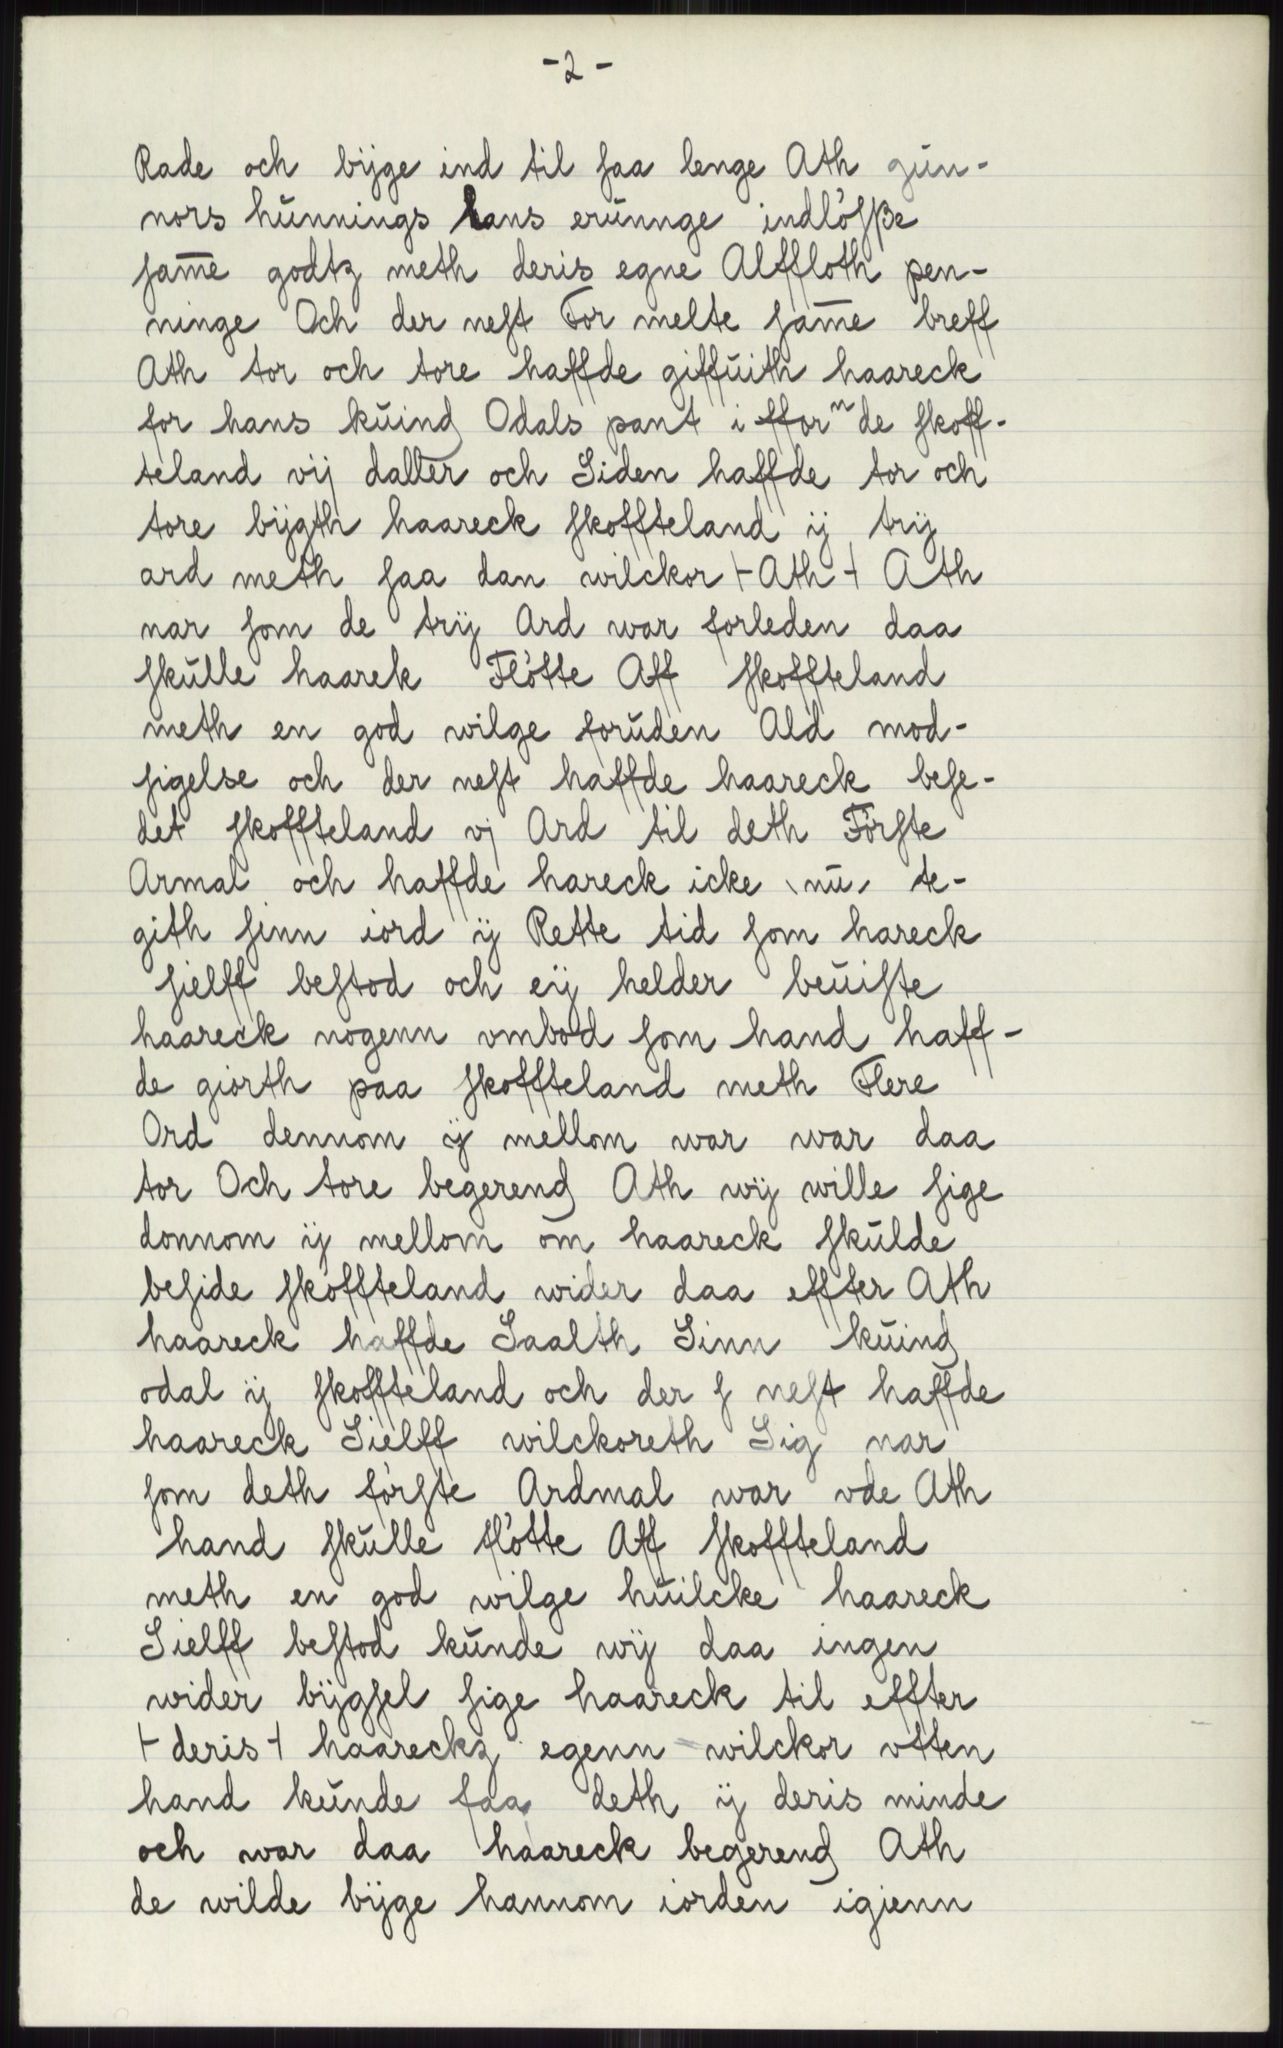 -2-
Rade och bijge ind til saa lenge Ath gún-
nors húnnings hans erúnnge indlösße
sam̅e godtz meth deris egne Alffloth pen-
ninge Och der nest For melte sam̅e breff
Ath tor och tore haffde giffúith haareck
for hans kúing Odals pant i fforⁿde skoff-
teland vij daller och Siden haffde tor och
tore bijgth haareck skoffteland ij trij
ard meth saa dan wilckor ⊢Ath⊣ Ath
nar som de trij Ard war forleden daa
skúlle haarek Flötte Aff skoffteland
meth en god wilge forúden Ald mod-
sigelse och der nest haffde haareck bese-
det skoffteland vj Ard til deth Förste
Armal och haffde hareck icke \nú/ te-
gith sinn iord ij Rette tid som hareck
sielff bestod och eij helder beúiste
haareck nogenn ombod som hand haff-
de giorth paa skoffteland meth Flere
Ord dennom ij mellom war war daa
tor Och tore begerend Ath wij wille sige
donnom ij mellom om haareck skúlde
beside skoffteland wider daa effter Ath
haareck haffde Saalth Sinn kúing
odal ij skoffteland och der s nest haffde
haareck Sielff wilckoreth Sig nar
som deth förste Ardmal war vde Ath
hand skúlle flötte Aff skoffteland
meth en god wilge húilcke haareck
Sielff bestod kúnde wij daa ingen
wider bijgsel sige haareck til effter
⊢deris⊣ haareckz egenn wilckor vtten
hand kúnde faa deth ij deris minde
och war daa haareck begerend Ath
de wilde bijge hannom iorden igienn